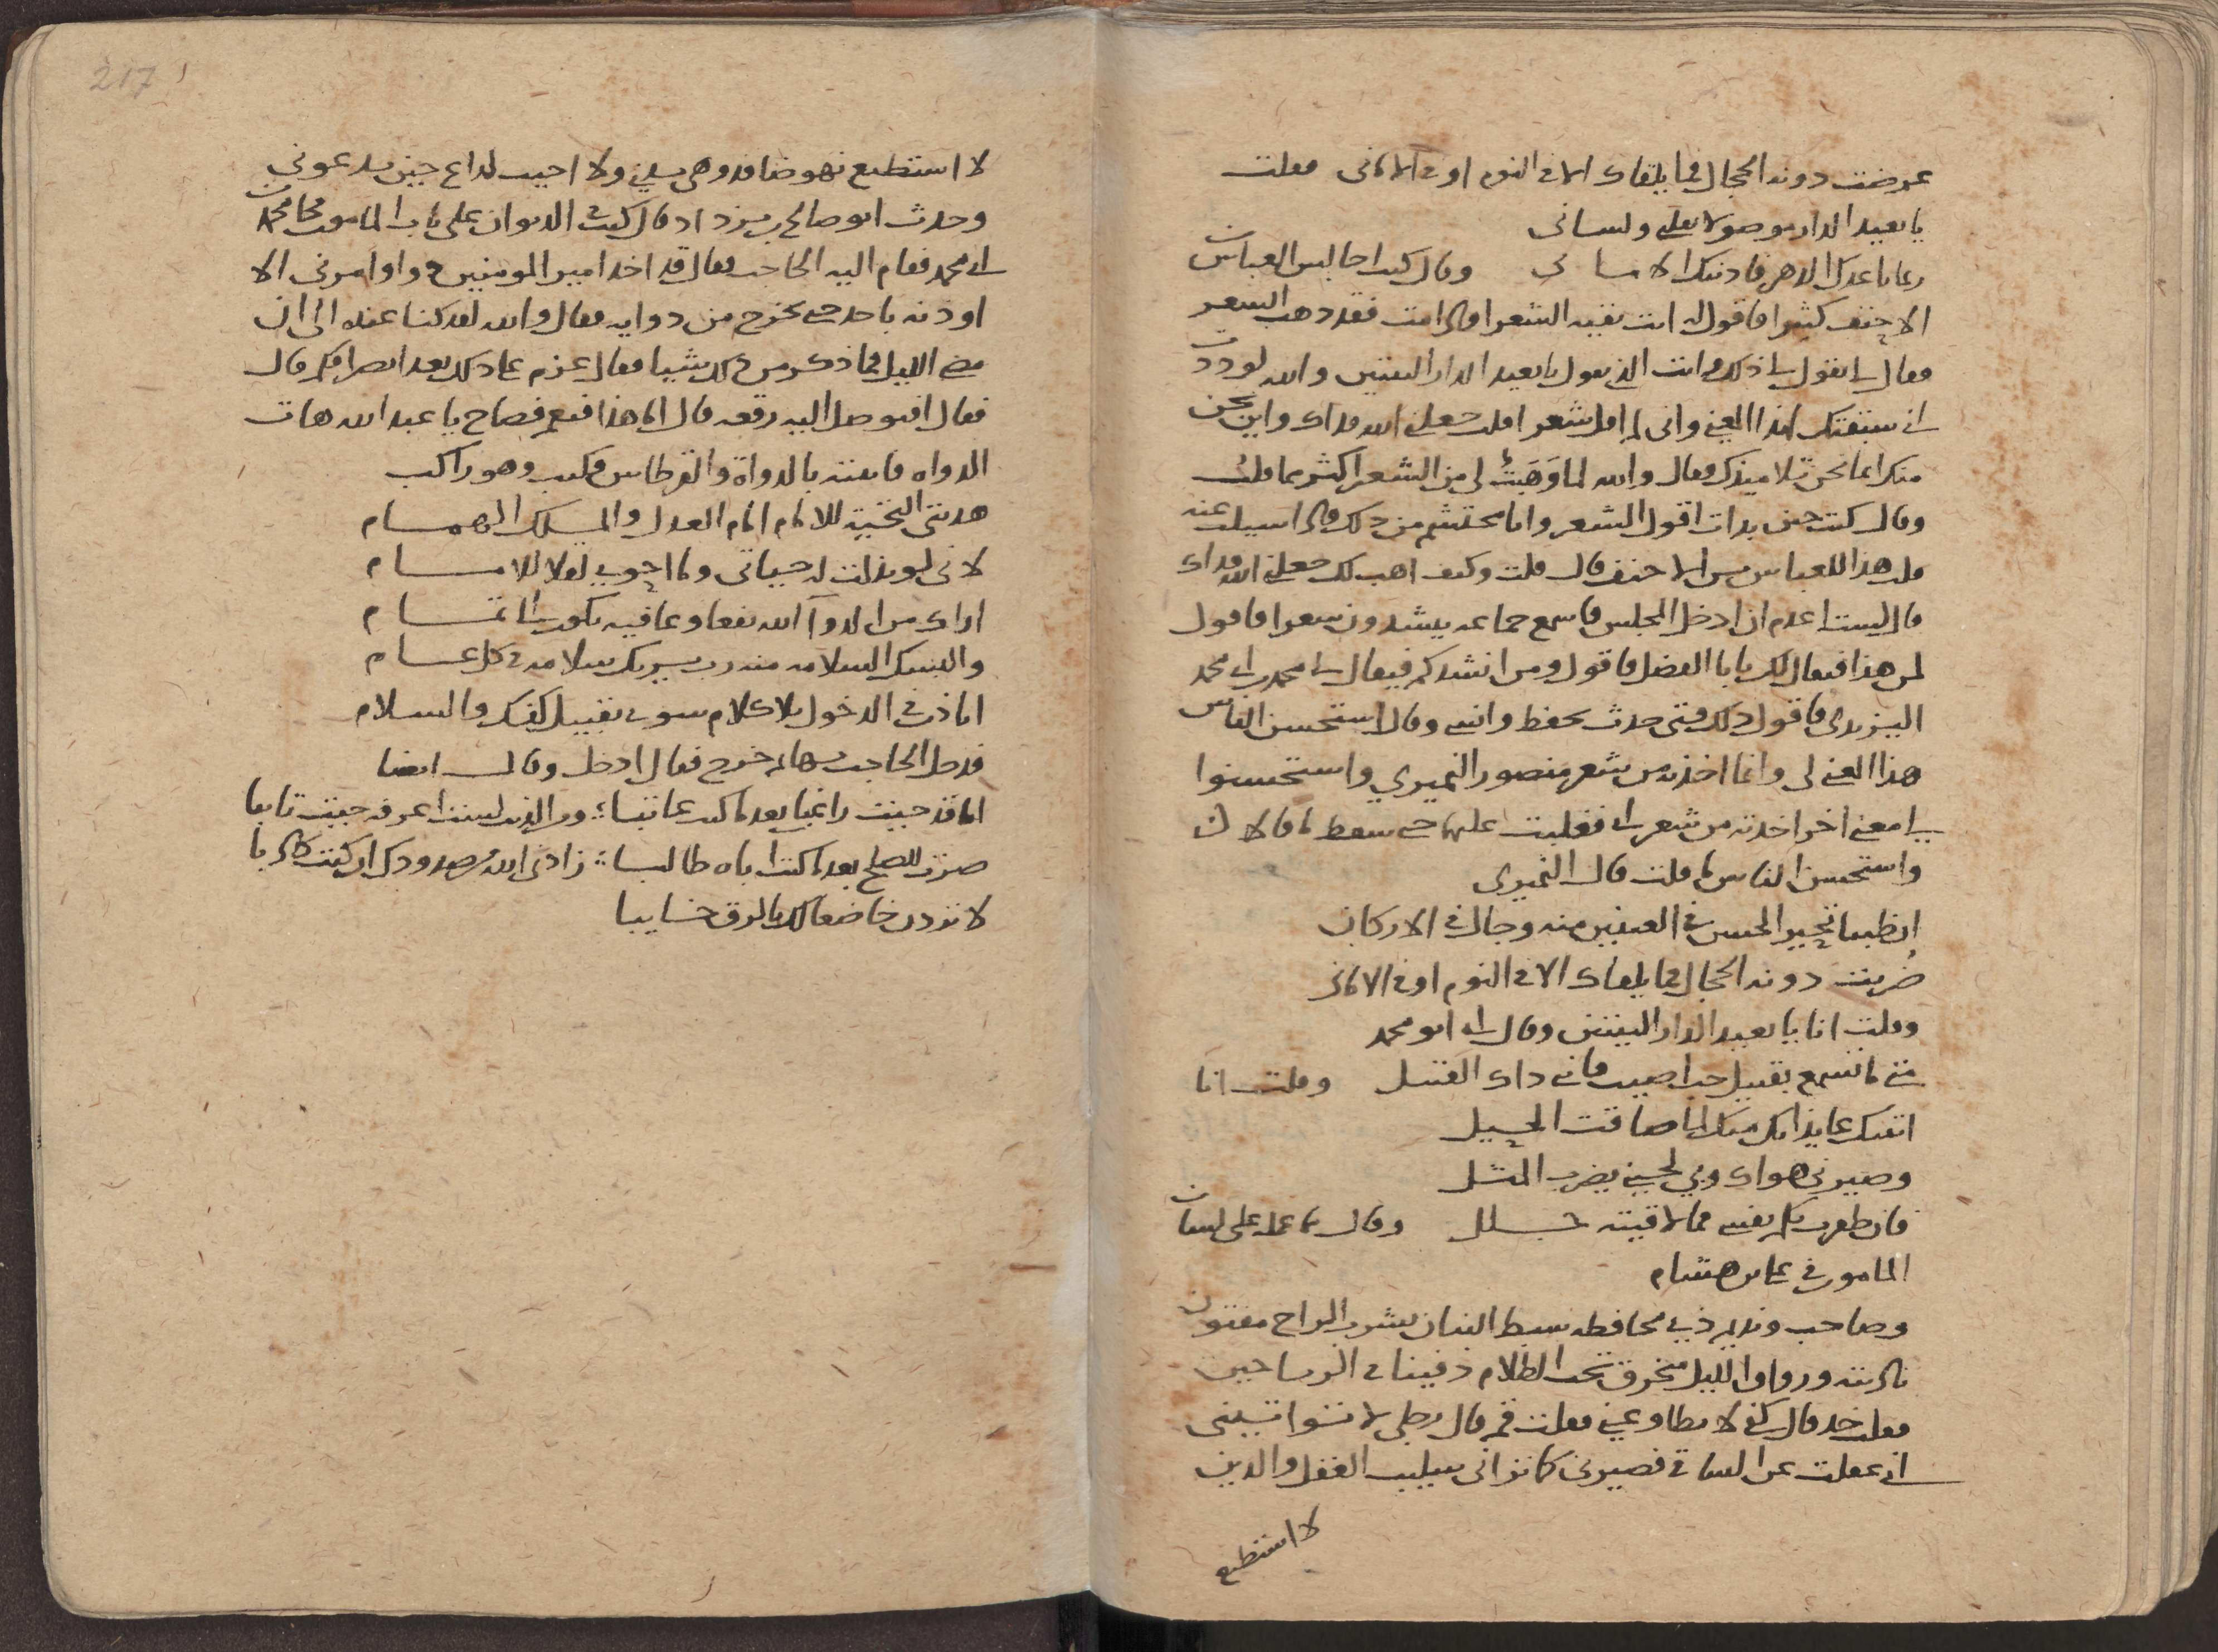 عرضت دونه الحجال فما يلقاك الا في النوم او في الاماني فقلت
يا بعيد الدار موصولا بقلبي ولساني
ربما باعدك الدهر فادنتك الاماني وقال كنت اجالس العباس بن
الاحنف كثيرا فاقول له انت بقية الشعرا فاذا مت فقد ذهب الشعر
فقال لي تقول لي ذلك وانت الذي تقول يا بعيد الدار البيتين والله لوددت
اني سبقتك لهذا المعنى واني لم اقل شعرا قلت جعلني الله فداك واين نحن
منك انما نحن تلاميذك فقال والله لما وَهَبتُ لي من الشعر اكثر مما قلت
وقال كنت حين بدات اقول الشعر وانا محتشم من ذلك فاذا سيلت عنه
قلت هذا للعباس بن الاحنف قال قلت وكيف اهب لك جعلني الله فداك
قال لست اعدم ان ادخل المجلس فاسمع جماعه ينشدون شعرا فاقول
لمن هذا فيقال لك يا با الفضل فاقول ومن انشدكم فيقال لي محمد بن ابي محمد
اليزيدي فاقول ذلك فتى حدث يحفظ وانسى وقال استحسن الناس
هذا المعنى لي وانما اخذته من شعر منصور النميري واستحسنوا
لي معنى اخر اخذته من شعر ابي فغلبت عليهما حتى سقط ما قالا
واستحسن الناس ما قلت قال النميري
ان ظبيا تحير الحسن في العينين منه وجال في الاركان
ضُربت دونه الحجال فما يلقاك الا في النوم او في الاماني
وقلت انا يا بعيد الدار البيتين وقال ابي ابو محمد
متى ما تسمع بقتيل حب اصيب فاني ذاك القتيل وقلت انا
اتيتك عايذا بك منك لما ضاقت الحيل
وصيرني هواك وبي لحيني يضرب المثل
فان ظفرت بكم نفسي فما لاقيته جلل وقال مما عمله على لسان
المامون في علي بن هشام
وصاحب ونديم ذي محافظه سبط البنان بشرب الراح مفتون
ناديته ورواق الليل منخرق تحت الظلام دفينا في الرياحين
فقلت خذ قال كفي لا تطاوعني فقلت قم قال رجلي لا تواتيني
اني غفلت عن الساقي فصيرني كما تراني سليب العقل والدين
لا استطيع
217
لا استطيع نهوضا قد وهى بدني ولا اجيب لداع حين يدعوني
وحدث ابو صالح بن يزداد قال كنت في الديوان على باب المامون فجا محمد بن
ابي محمد فقام اليه الحاجب فقال قد اخذ امير المومنين دوا وامرني الا
اوذنه باحد حتى يخرج من دوايه فقال والله لقد كنا عنده الى ان
مضى الليل فما ذكر من ذلك شيا فقال عزم على ذلك بعد انصرافكم قال
فقال افتوصل اليه رقعه قال اما هذا فنعم فصاح يا عبد الله هات
الدواه فاتيته بالدواة والقرطاس فكتب وهو راكب
هديتي التحيه للامام امام العدل والملك الهمام
لاني لو بذلت له حياتي وما احوي لقلا للامام
اراك من الدوآ الله نفعا وعافيه تكون الى تمام
والبسك السلامه منه رب يريك سلامه في كل عام
اتاذن في الدخول بلا كلام سوى تقبيل كفك والسلام
فدخل الحاجب بها ثم خرج فقال ادخل وقال ايضا
اما قد جيت راغبا بعد ما كنت عاتبا؛ والذي لست اعرفه جيت تايبا
صرت للصلح بعد ما كنت اباه طالبا؛ زادني الله صدودك ان كنت كاذبا
لا تردن خاضعا لك بالرق خايبا